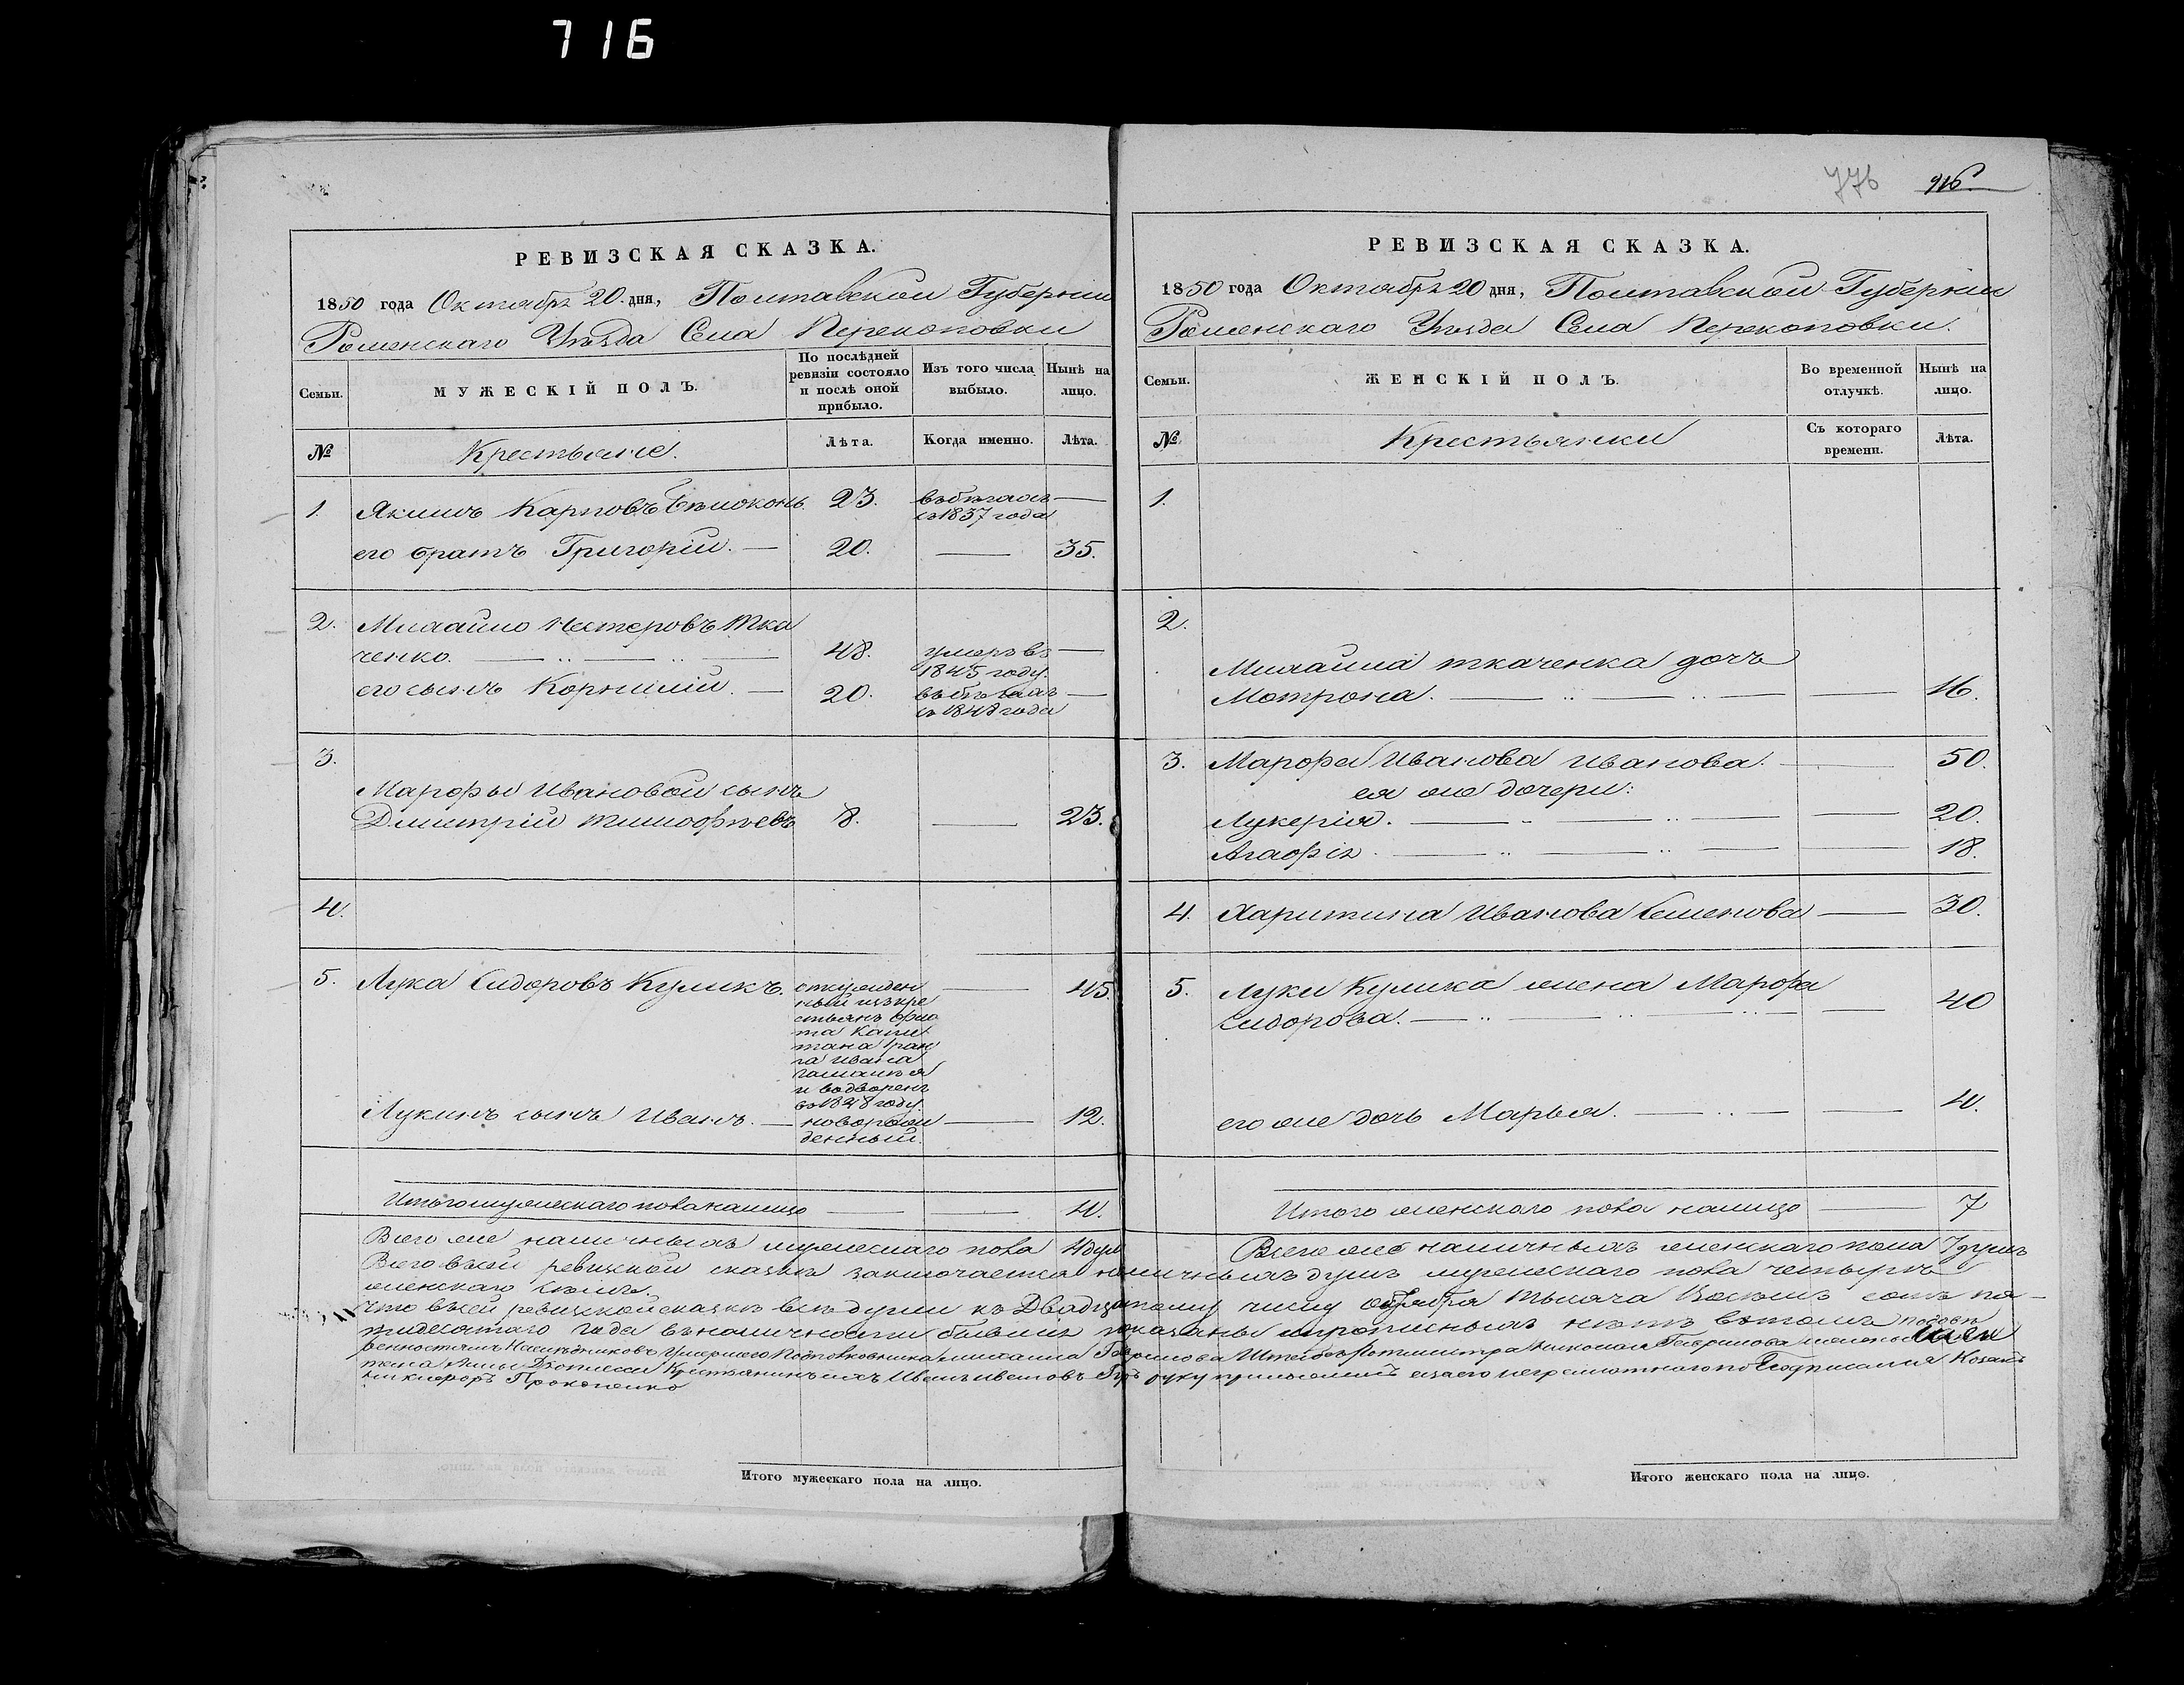 716
776 916
РЕВИЗСКАЯ СКАЗКА.
1850 года Октября 20 дня, Полтавской Губернии
Роменскаго Уѣзда Села Перекоповки
Семьи.
МУЖЕСКІЙ ПОЛЪ.
По послѣдней
ревизіи состояло
и послѣ оной
прибыло.
Изъ того числа
выбыло.
Нынѣ на
лицо.
№
Крестьяне.
Лѣта.
Когда именно.
Лѣта.
1. Якимъ Карповъ Бѣлоконь 23. въ бѣгахъ
съ 1837 года
его братъ Григорій. 20. 35.
2. Михайло Нестеровъ Тка
ченко. 48. умеръ въ
1845 году.
его сынъ Корнилій. 20. въ бѣгахъ
съ года
3.
Марфы Ивановой сынъ
Дмитрій Тимофѣевъ 8. 23.
4.
5. Лука Сидоровъ Куликъ. 45.
ный изъ кре
стьянъ
та Капи
тана
га Ивана
и водворенъ
въ году
Лукинъ сынъ Иванъ. новорож 12.
денный.
Итого мужескаго пола налицо 4.
Всего же наличныхъ мужескаго пола 4 душ
РЕВИЗСКАЯ СКАЗКА.
1850 года Октября 20 дня, Полтавской Губерніи
Роменскаго Уѣзда Села Перекоповки.
Семьи.
ЖЕНСКІЙ ПОЛЪ.
Во временной
отлучкѣ.
Нынѣ на
лицо.
№
Крестьянки
Съ котораго
времени.
Лѣта.
1.
2.
Михайла Ткаченка дочь
Мотрона. 16.
3. Марфа Иванова Иванова. 50.
ея же дочери:
Лукерія. 20.
Агафія. 18.
4. Харитина Иванова Семенова 30.
5. Луки Кулика жена Марфа
Сидорова. 40
его же дочь Марья. 4.
Итого женскаго пола налицо 7
Всего же наличныхъ женскаго пола 7 душъ
Всего въ сей ревизской сказкѣ заключается наличныхъ душъ мужескаго пола четыре
женскаго семь.
что въ сей ревизской сказкѣ всѣ души къ Двадцатому числу Октября тысяча восемь сотъ пя-
тидесятаго года въ наличности бывшія показаны и прописныхъ нѣтъ въ томъ
Наслѣдниковъ умершаго Подполковника Михаила Гаврилова Штабсъ Ротмистра Николая Гаврилова
Крестьянинъ ихъ Иванъ Ивановъ руку приложилъ а за его неграмотнаго Козакъ
Никифоръ Прокопенко
Итого мужескаго пола на лицо.
Итого женскаго пола на лицо.